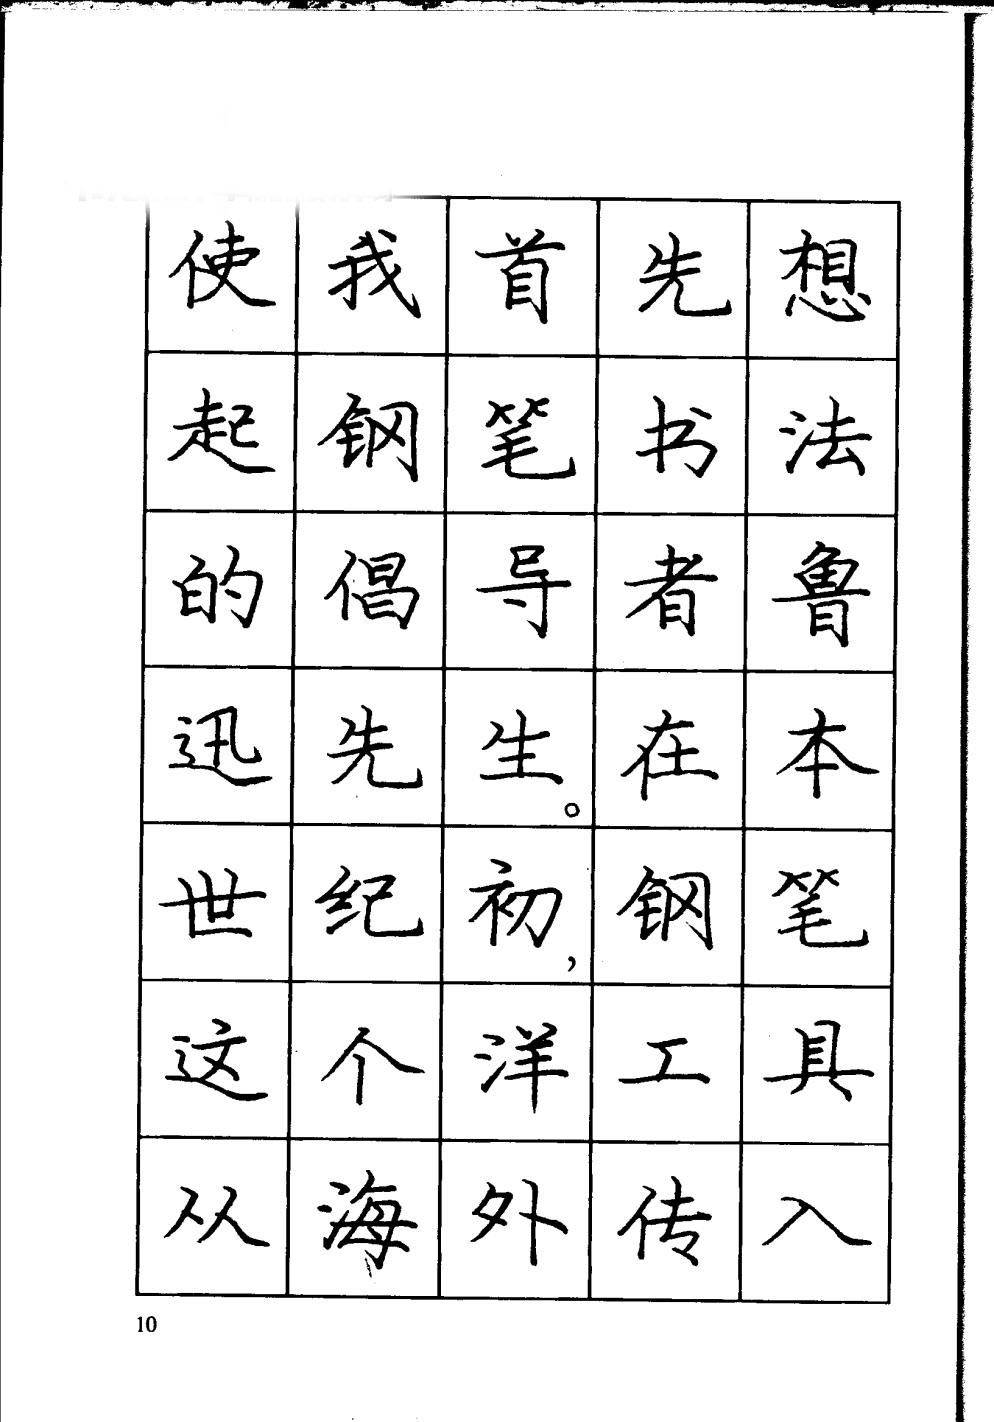 使我首先想
起钢笔书法
的倡导者鲁
迅先生。在本
世纪初,钢笔
这个洋工具
从海外传入
10